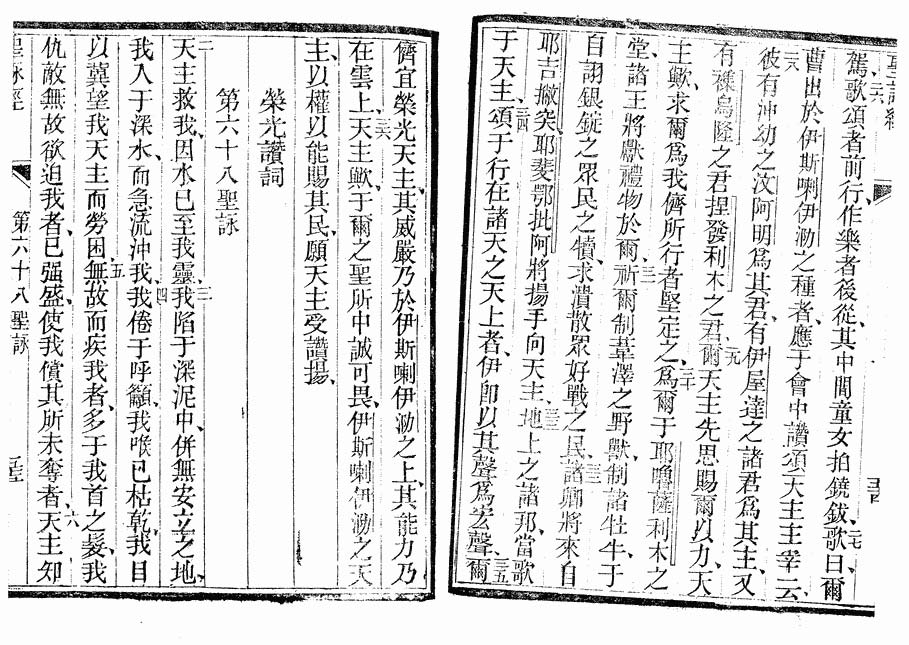 聖詠經
三六
駕、歌頌者前行、作樂者後從、其中間童女拍鐃鈸歌曰、二七爾
曹出於伊斯喇伊泐之種者、應于會中讚頌天主主宰云、
二八彼有沖幼之汶阿明為其君、有伊屋達之諸君為其主、又
有襍烏隆之君、揑發利木之君、二九爾天主先思賜爾以力、天
主歟、求爾為我儕所行者堅定之、三十為爾于耶嚕薩利木之
堂、諸王將獻禮物於爾、三一祈爾制葦澤之野獸、制諸牡牛于
自詡銀錠之眾民之犢、求潰散眾好戰之民、三二諸卿將來自
耶吉撇突、耶斐鄂批阿將揚手向天主、三三地上之諸邦、當歌
于天主、三四頌于行在諸天之天上者、伊卽以其聲為宏聲、三五爾
儕宜榮光天主、其威嚴乃於伊斯喇伊泐之上、其能力乃
在雲上、三六天主歟、于爾之聖所中誠可畏、伊斯喇伊泐之天
主、以權以能賜其民、願天主受讚揚、
榮光讚詞
第六十八聖詠
二天主救我、因水已至我靈、三我陷于深泥中、併無安立之地、
我入于深水、而急流沖我、四我倦于呼籲、我喉已枯乾、我目
以冀望我天主而勞困、五無故而疾我者、多于我首之髮、我
仇敵無故欲迫我者、已强盛、使我償其所未奪者、六天主知
聖詠經
第六十八聖詠